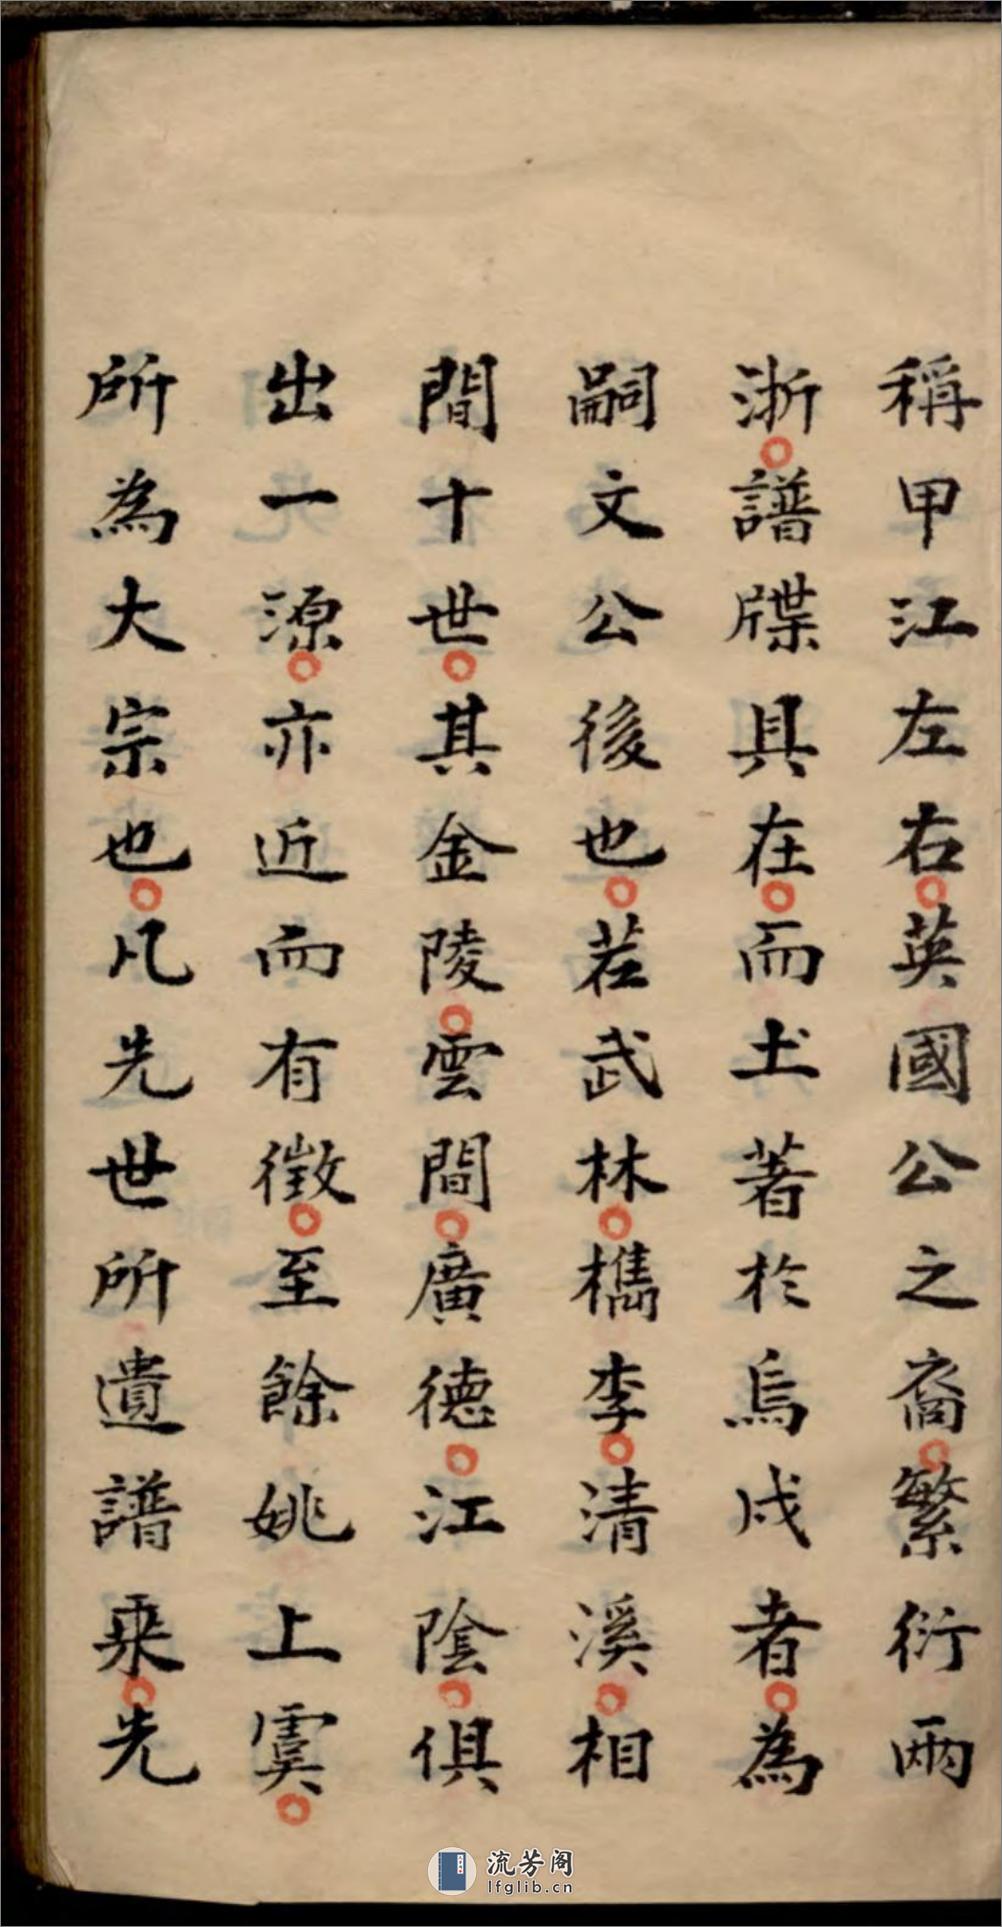 稱甲江左右英國公之裔繁衍兩
浙譜牒具在而土著於烏戍者為
嗣文公後也若武林檇李清溪相
間十世其金陵雲間廣德江陰俱
出一源亦近而有徵至餘姚上虞
所為大宗也凡先世所遺譜乘先
流芳阁
lfglib.cn